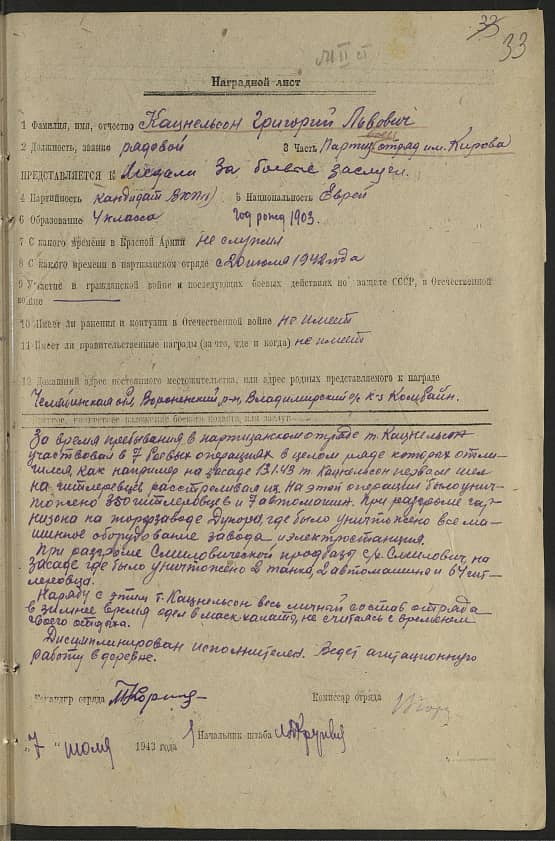 33
33
Наградной лист
1 Фамилия, имя, отчество Кацнельсон Григорий Львович
2 Должность, звание рядовой боец 3 Часть Партиз. отряд им. Кирова
ПРЕДСТАВЛЯЕТСЯ К Медали За боевые заслуги.
4 Партийность кандидат ВКП(б) 5 Национальность Еврей
6 Образование 4 класса год рожд 1903.
7 С какого времени в Красной Армии не служил
8 С какого времени в партизанском отряде с 20 июля 1942 года
9 Участие в гражданской войне и последующих боевых действиях по защите СССР, в Отечественной
войне
10 Имеет ли ранения и контузии в Отечественной войне не имеет
11 Имеет ли правительственные награды (за что, где и когда) не имеет
12 Домашний адрес постоянного местожительства, или адрес родных представляемого к награде
Челябинская обл, р-н, Владимирский с/с к-з Комбайн.
конкретное изложение боевого подвига, или заслуг
За время пребывания в партизанском отряде т. Кацнельсон
участвовал в 7 боевых операциях в целом ряде которых отли-
чился, как например на засаде 13.1.43 т Кацнельсон первым шел
на гитлеревцев расстреливая их. На этой операции было унич-
тожено 350 гитлеровцев и 7 автомашин. При разгроме гар-
низона на торфзаводе Дукора, где было уничтожено все ма-
шинное оборудование завода и электростанция.
При разгроме Смиловической продбазы с/р. Смилович, на
засаде где было уничтожено 2 танка, 2 автомашины и 64 гит-
леровца.
Наряду с этим т. Кацнельсон весь личный состав отряда
в зимнее время одел в маскхалаты, не считаясь с временем
своего отдыха.
Дисциплинирован исполнителен. Ведет агитационную
работу в деревне.
Командир отряда
Комиссар отряда
Начальник штаба
"7" июля 1943 года